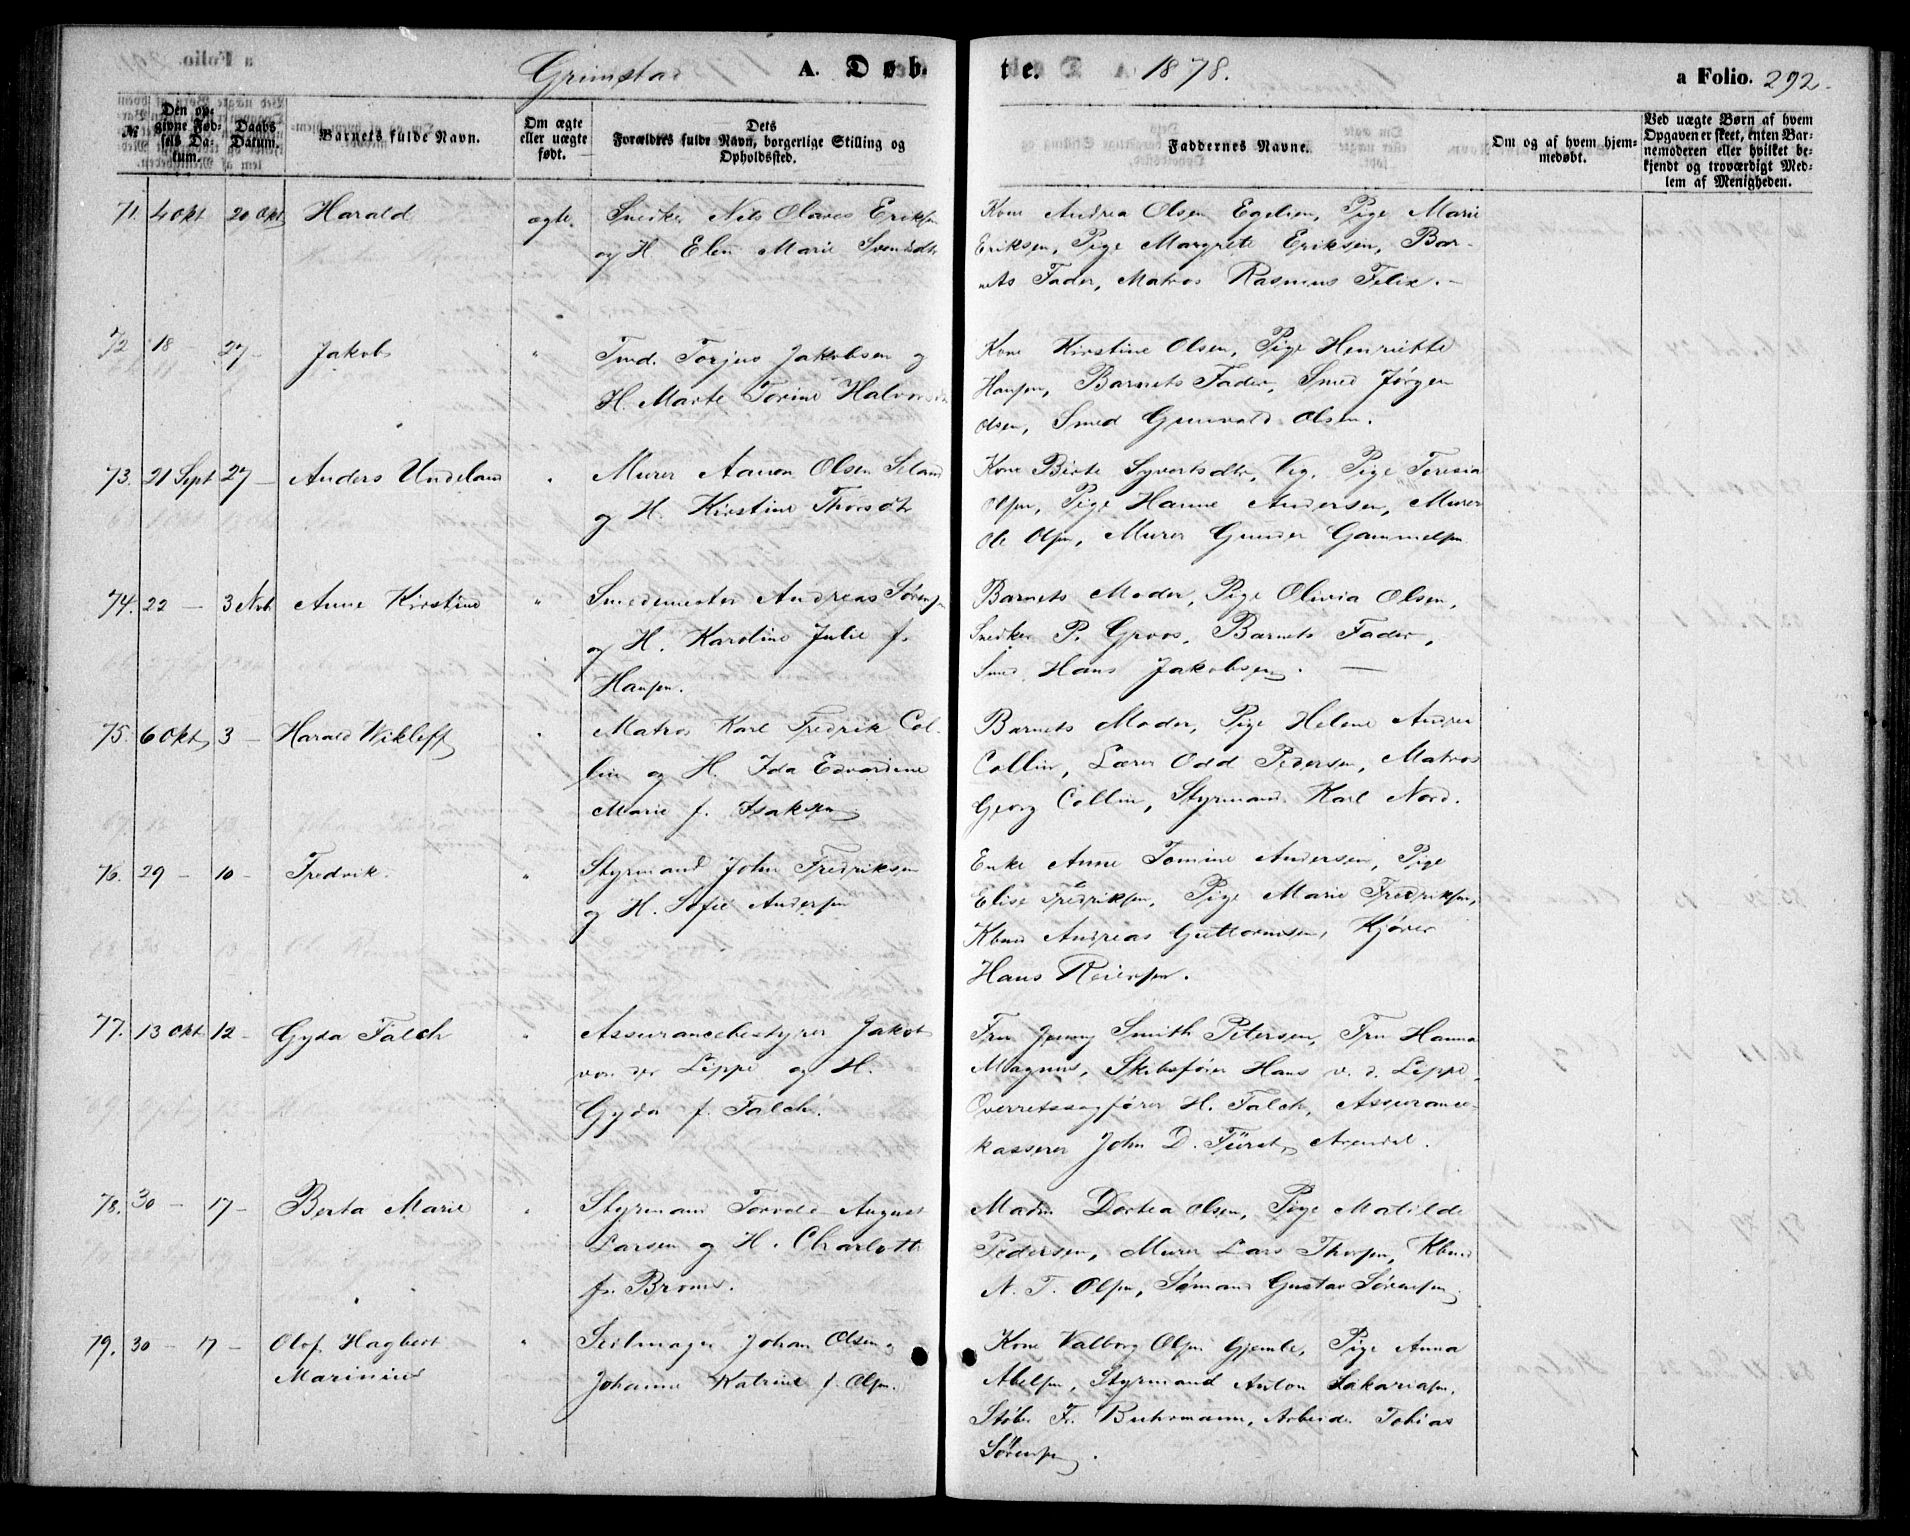 Grimstad A. Døb-
te. 1878. a Folio. 292.
№
Den op-
givne Fød-
sels Da-
tum.
Daabs
Datum.
Barnets fulde Navn.
Om ægte
eller uægte
født.
Dets
Forældres fulde Navn, borgerlige Stilling og
Opholdssted.
Faddernes Navne.
Om og af hvem hjem-
medøbt.
Ved uægte Børn af hvem
Opgaven er skeet, enten Bar-
nemoderen eller hvilket be-
kjendt og troværdigt Med-
lem af Menigheden.
71. 4 Okt 20 Okt Harald ægte. Snedker Nils Olaves Eriksen
og H. Elen Marie Svendsdtr
Kone Andrea Olsen Egelien, Pige Marie
Eriksen, Pige Margrete Eriksen, Bar-
nets Fader, Matros Rasmus Felix. -
72 18 - 27 - Jakob " Torjus Jakobsen og
H. Marte Torine Halvorsdtr
Kone Kirstine Olsen, Pige Henriette
Hansen, Barnets Fader, Smed Jørgen
Olsen, Smed Gunvald Olsen.
73. 21 Sept 27 - Anders Undeland " Murer Aanon Olsen
og H. Kirstine Thorsdtr
Kone Birte Syvertsdtr, Pige Teresia
Olsen, Pige Hanne Andersen, Murer
Ole Olsen, Murer Gunder Gammelsen
74. 22 - 3 Nvb Anne Kirstine " Smedemester Andreas Sørensen
og H. Karoline Julie f.
Hansen.
Barnets Moder, Pige Olivia Olsen,
Snedker P. Groos, Barnets Fader,
Smed Hans Jakobsen. -
75. 6 Okt 3 - Harald Wikleff " Matros Karl Fredrik Col-
lin og H. Ida Edvardine
Marie f. Isaksen
Barnets Moder, Pige Helene Andrea
Collin, Lærer Odd Pedersen, Matros
Georg Collin, Styrmand Karl Nord.
76. 29 - 10 - Fredrik. " Styrmand John Fredriksen
og H. Sofie Andersen
Enke Anne Tomine Andersen, Pige
Elise Fredriksen, Pige Marie Fredriksen,
Kbmd Andreas Guttormsen, Kjører
Hans Reiersen.
77. 13 Okt 12 - Gyda Falch " Assurancebestyrer Jakob
von der Lippe og H.
Gyda f. Falch.
Fru Jenny Smith Petersen, Fru Hanna
Magnus, Skibsfører Hans v. d. Lippe,
Overretssagfører H. Falch, Assurance-
kasserer John D. Fürst, Arendal.
78. 30 - 17 - Berta Marie " Styrmand Torvald August
Larsen og H. Charlotte
f. Broms.
Madm Dortea Olsen, Pige Matilde
Pedersen, Murer Lars Thorsen, Kbmd
N. T. Olsen, Sømand Gustav Sørensen
79. 30 - 17 - Olof Hagbert " Seilmager Johan Olsen og
Marinius Johanne Katrine f. Olsen.
Kone Valborg Olsen Gjemle, Pige Anna
Abelsen, Styrmand Anton Sakariasen,
Støber Fr. Buhrmann, Arbeider Tobias
Sørensen.